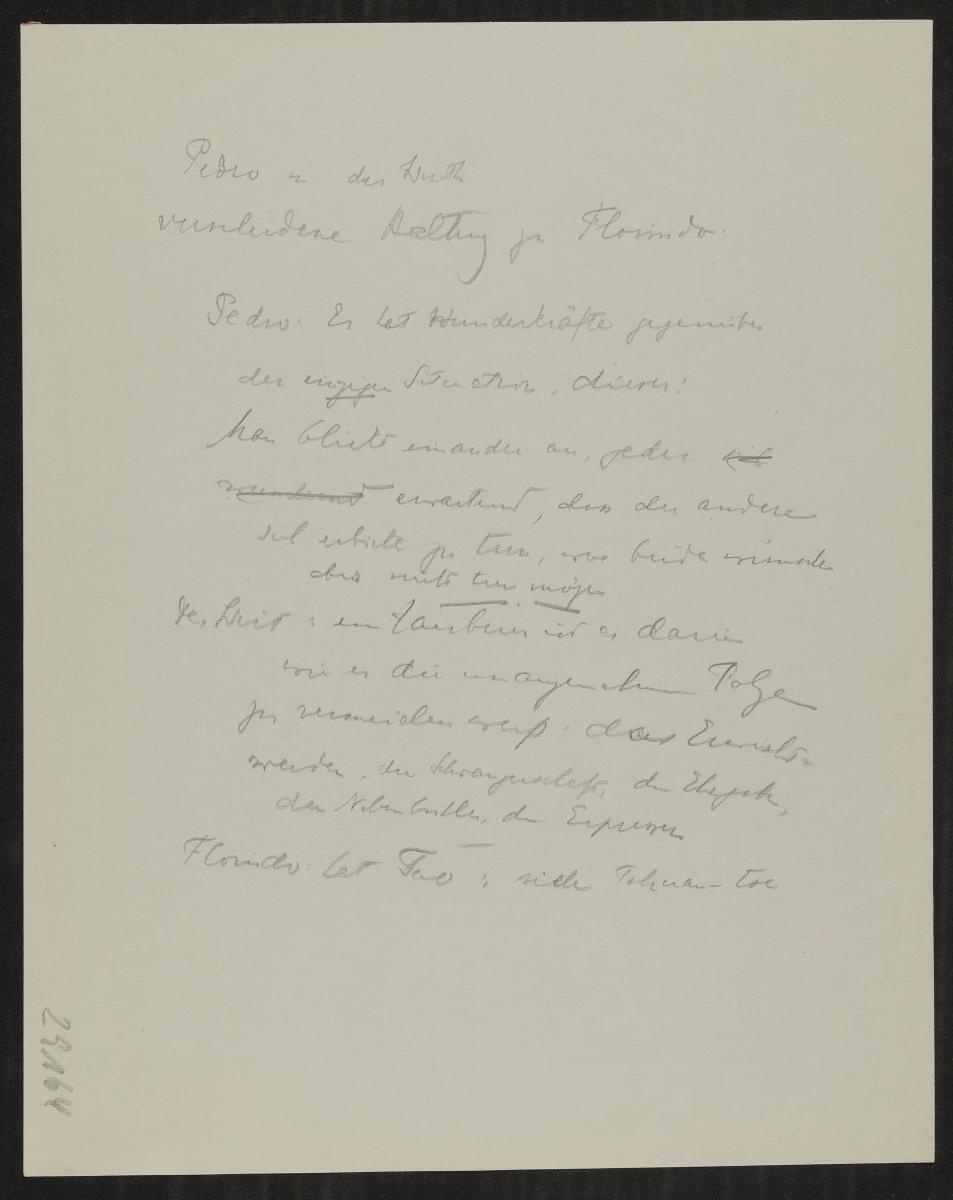 Pedro u. der Wirth
verschiedene Haltung zu Florindo:
Pedro: Er hat Wunderkräfte gegenüber
der einzigen Situation, dieser:
Man blickt einander an, jeder
erwartend, dass der andere
sich erbiete zu tun, was beide wünschen
aber nicht tun mögen
Der Wirt: ein Zauberer ist er darin
wie er die unangenehmen Folgen
zu vermeiden weiss: das Erwischt-
werden, die Schwangerschaft, den Ehegatten,
den Nebenbuhler, den Erpresser
Florindo: hat Tao: siehe Tschuan-tse
29164